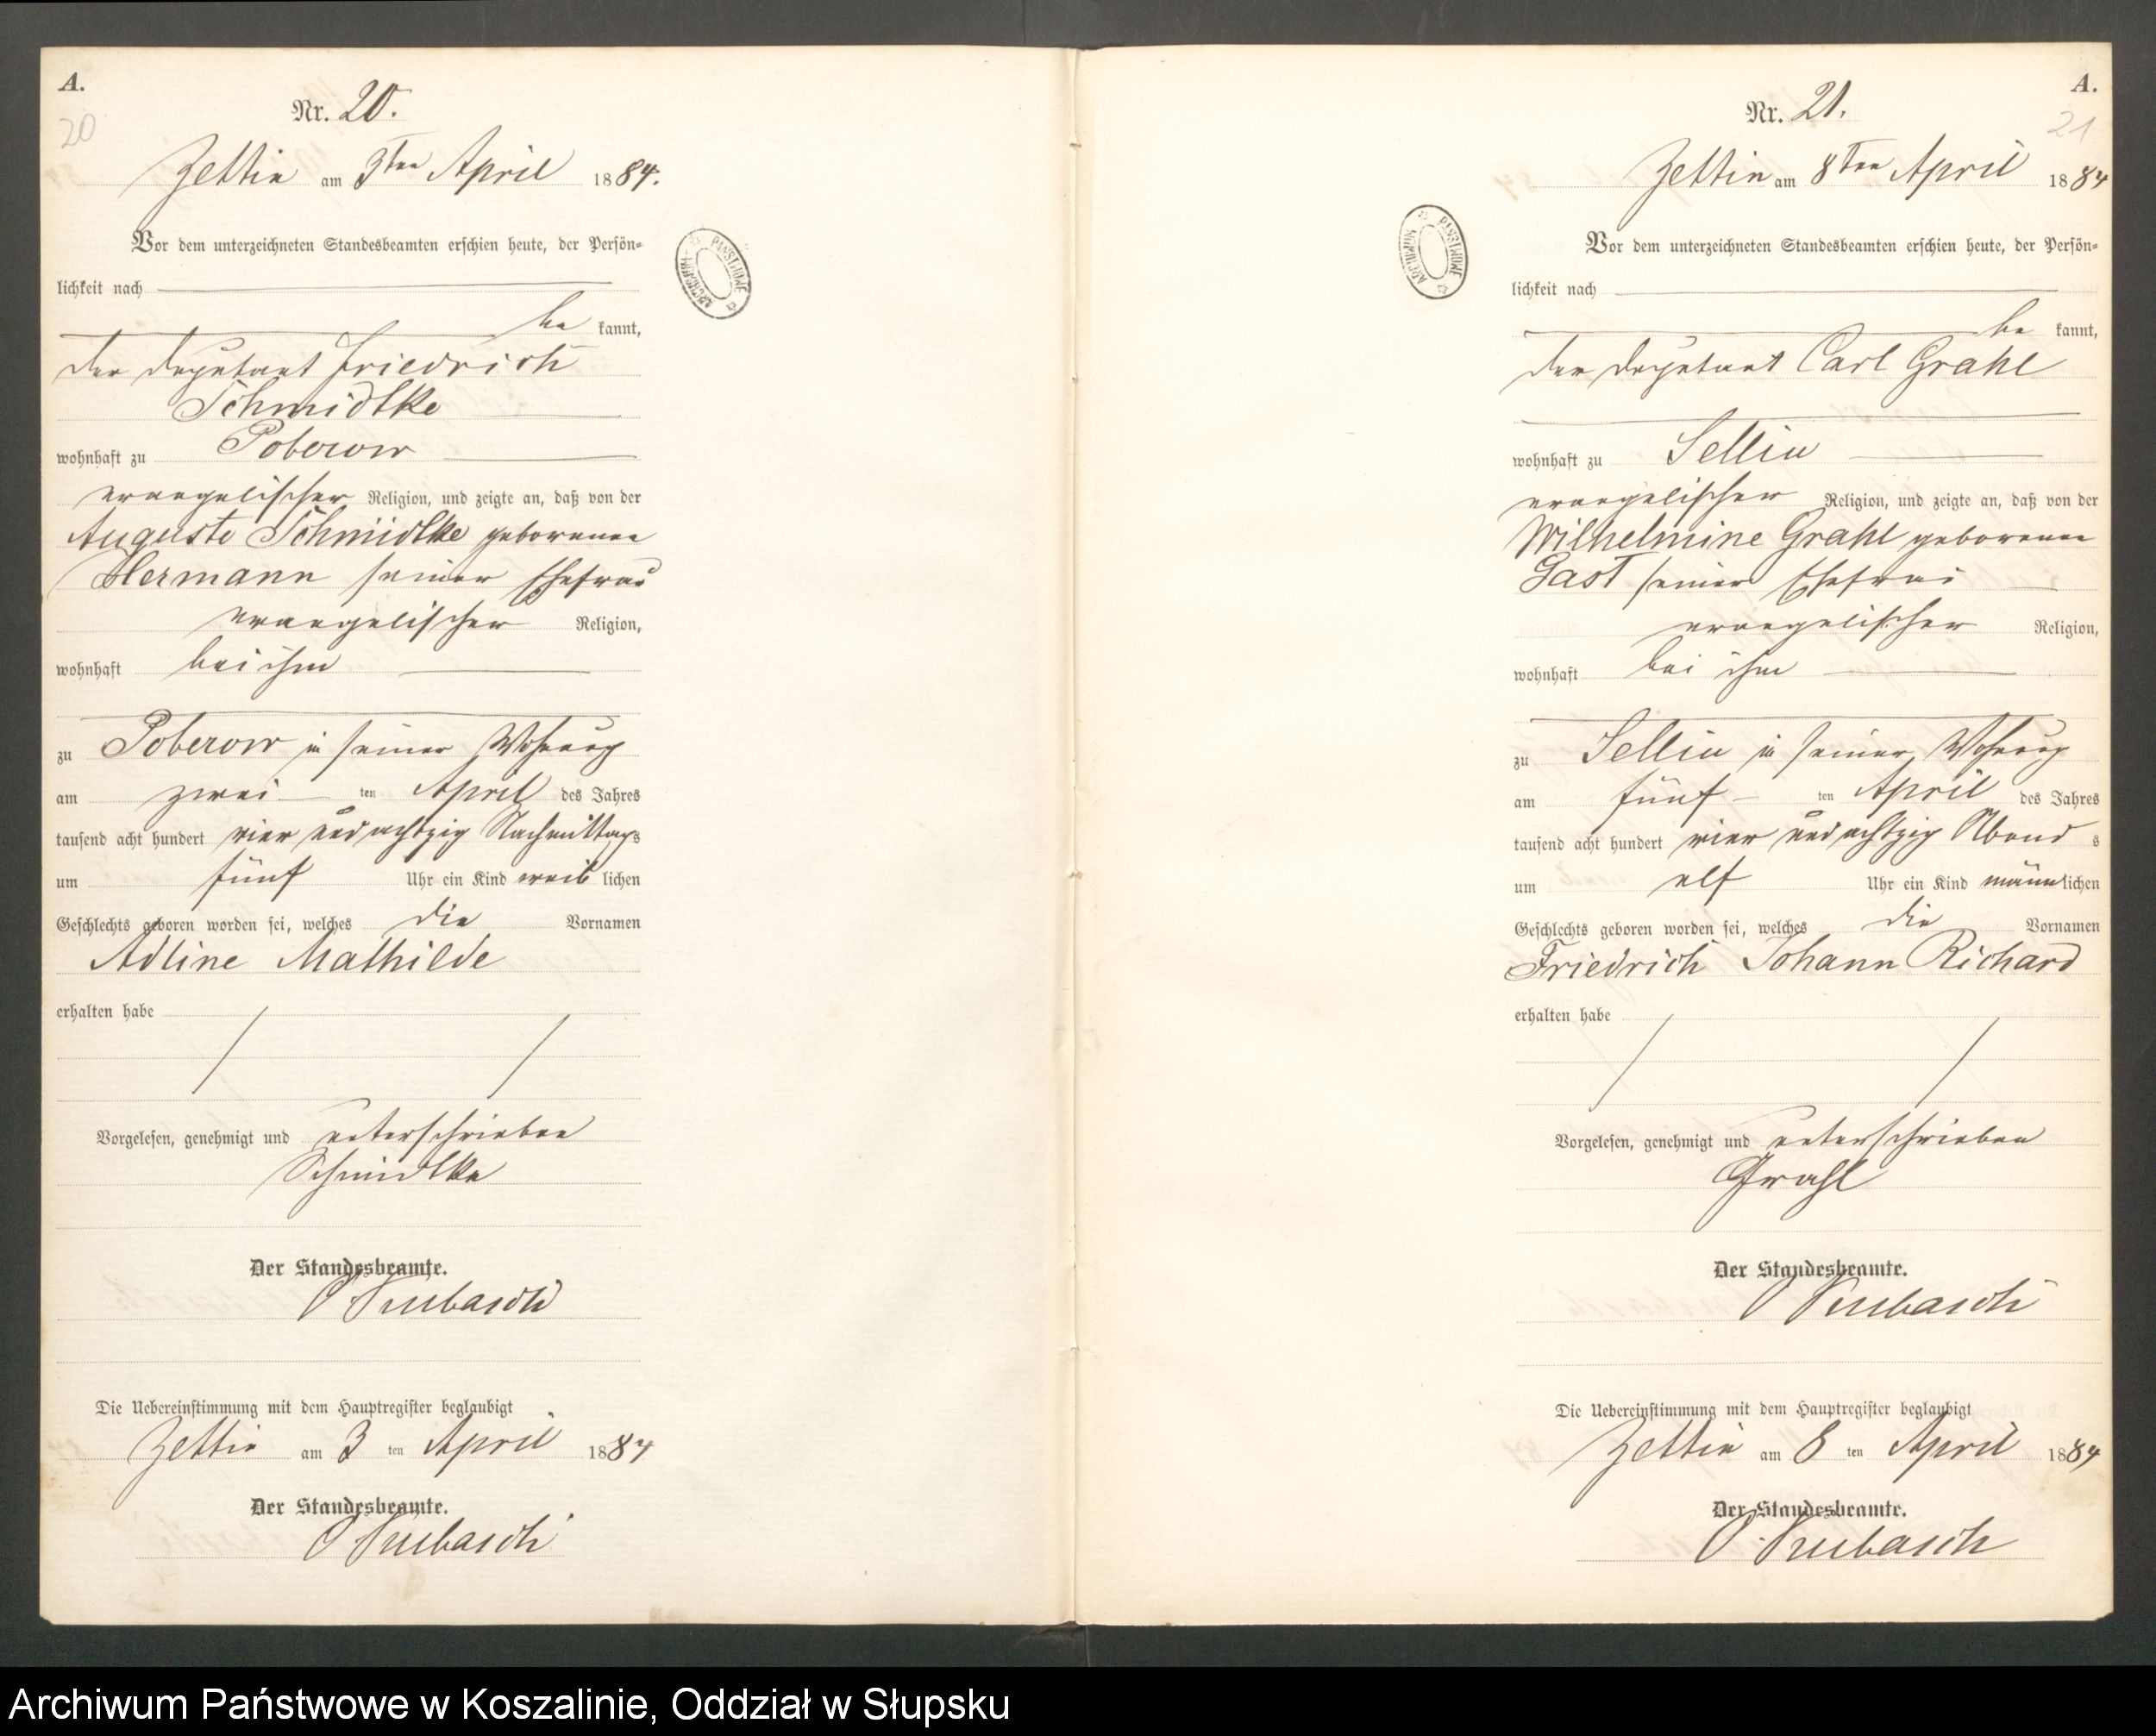 A.
20
Nr. 20.
Zettin am 3ten April 1884.
Vor dem unterzeichneten Standesbeamten erschien heute, der Persön-
lichkeit nach
be kannt,
der Deputant Friedrich
Schmidtke
wohnhaft zu Poberow
evangelischer Religion, und zeigte an, daß von der
Auguste Schmidtke geborenen
Hermann seiner Ehefrau
evangelischer Religion,
wohnhaft bei ihm
zu Poberow in seiner Wohnung
am zwei ten April des Jahres
tausend acht hundert vier und achtzig Nachmittags
um fünf Uhr ein Kind weib lichen
Geschlechts geboren worden sei, welches die Vornamen
Adline Mathilde
erhalten habe
Vorgelesen, genehmigt und unterschrieben
Schmidtke
Der Standesbeamte.
Die Uebereinstimmung mit dem Hauptregister beglaubigt
Zettin am 3 ten April 1884
Der Standesbeamte.
ARCHIWUM PAŃSTWOWE
A.
21
Nr. 21.
Zettin am 8ten April 1884
Vor dem unterzeichneten Standesbeamten erschien heute, der Persön-
lichkeit nach
be kannt,
der Deputant Carl Grahl
wohnhaft zu Sellin
evangelischer Religion, und zeigte an, daß von der
Wilhelmine Grahl geborenen
Gast seiner Ehefrau
evangelischer Religion,
wohnhaft bei ihm
zu Sellin in seiner Wohnung
am fünf ten April des Jahres
tausend acht hundert vier und achtzig Abend s
um elf Uhr ein Kind männlichen
Geschlechts geboren worden sei, welches die Vornamen
Friedrich Johann Richard
erhalten habe
Vorgelesen, genehmigt und unterschrieben
Grahl
Der Standesbeamte.
Die Uebereinstimmung mit dem Hauptregister beglaubigt
Zettin am 8 ten April 1884
Der Standesbeamte.
ARCHIWUM PAŃSTWOWE
Archiwum Państwowe w Koszalinie, Oddział w Słupsku